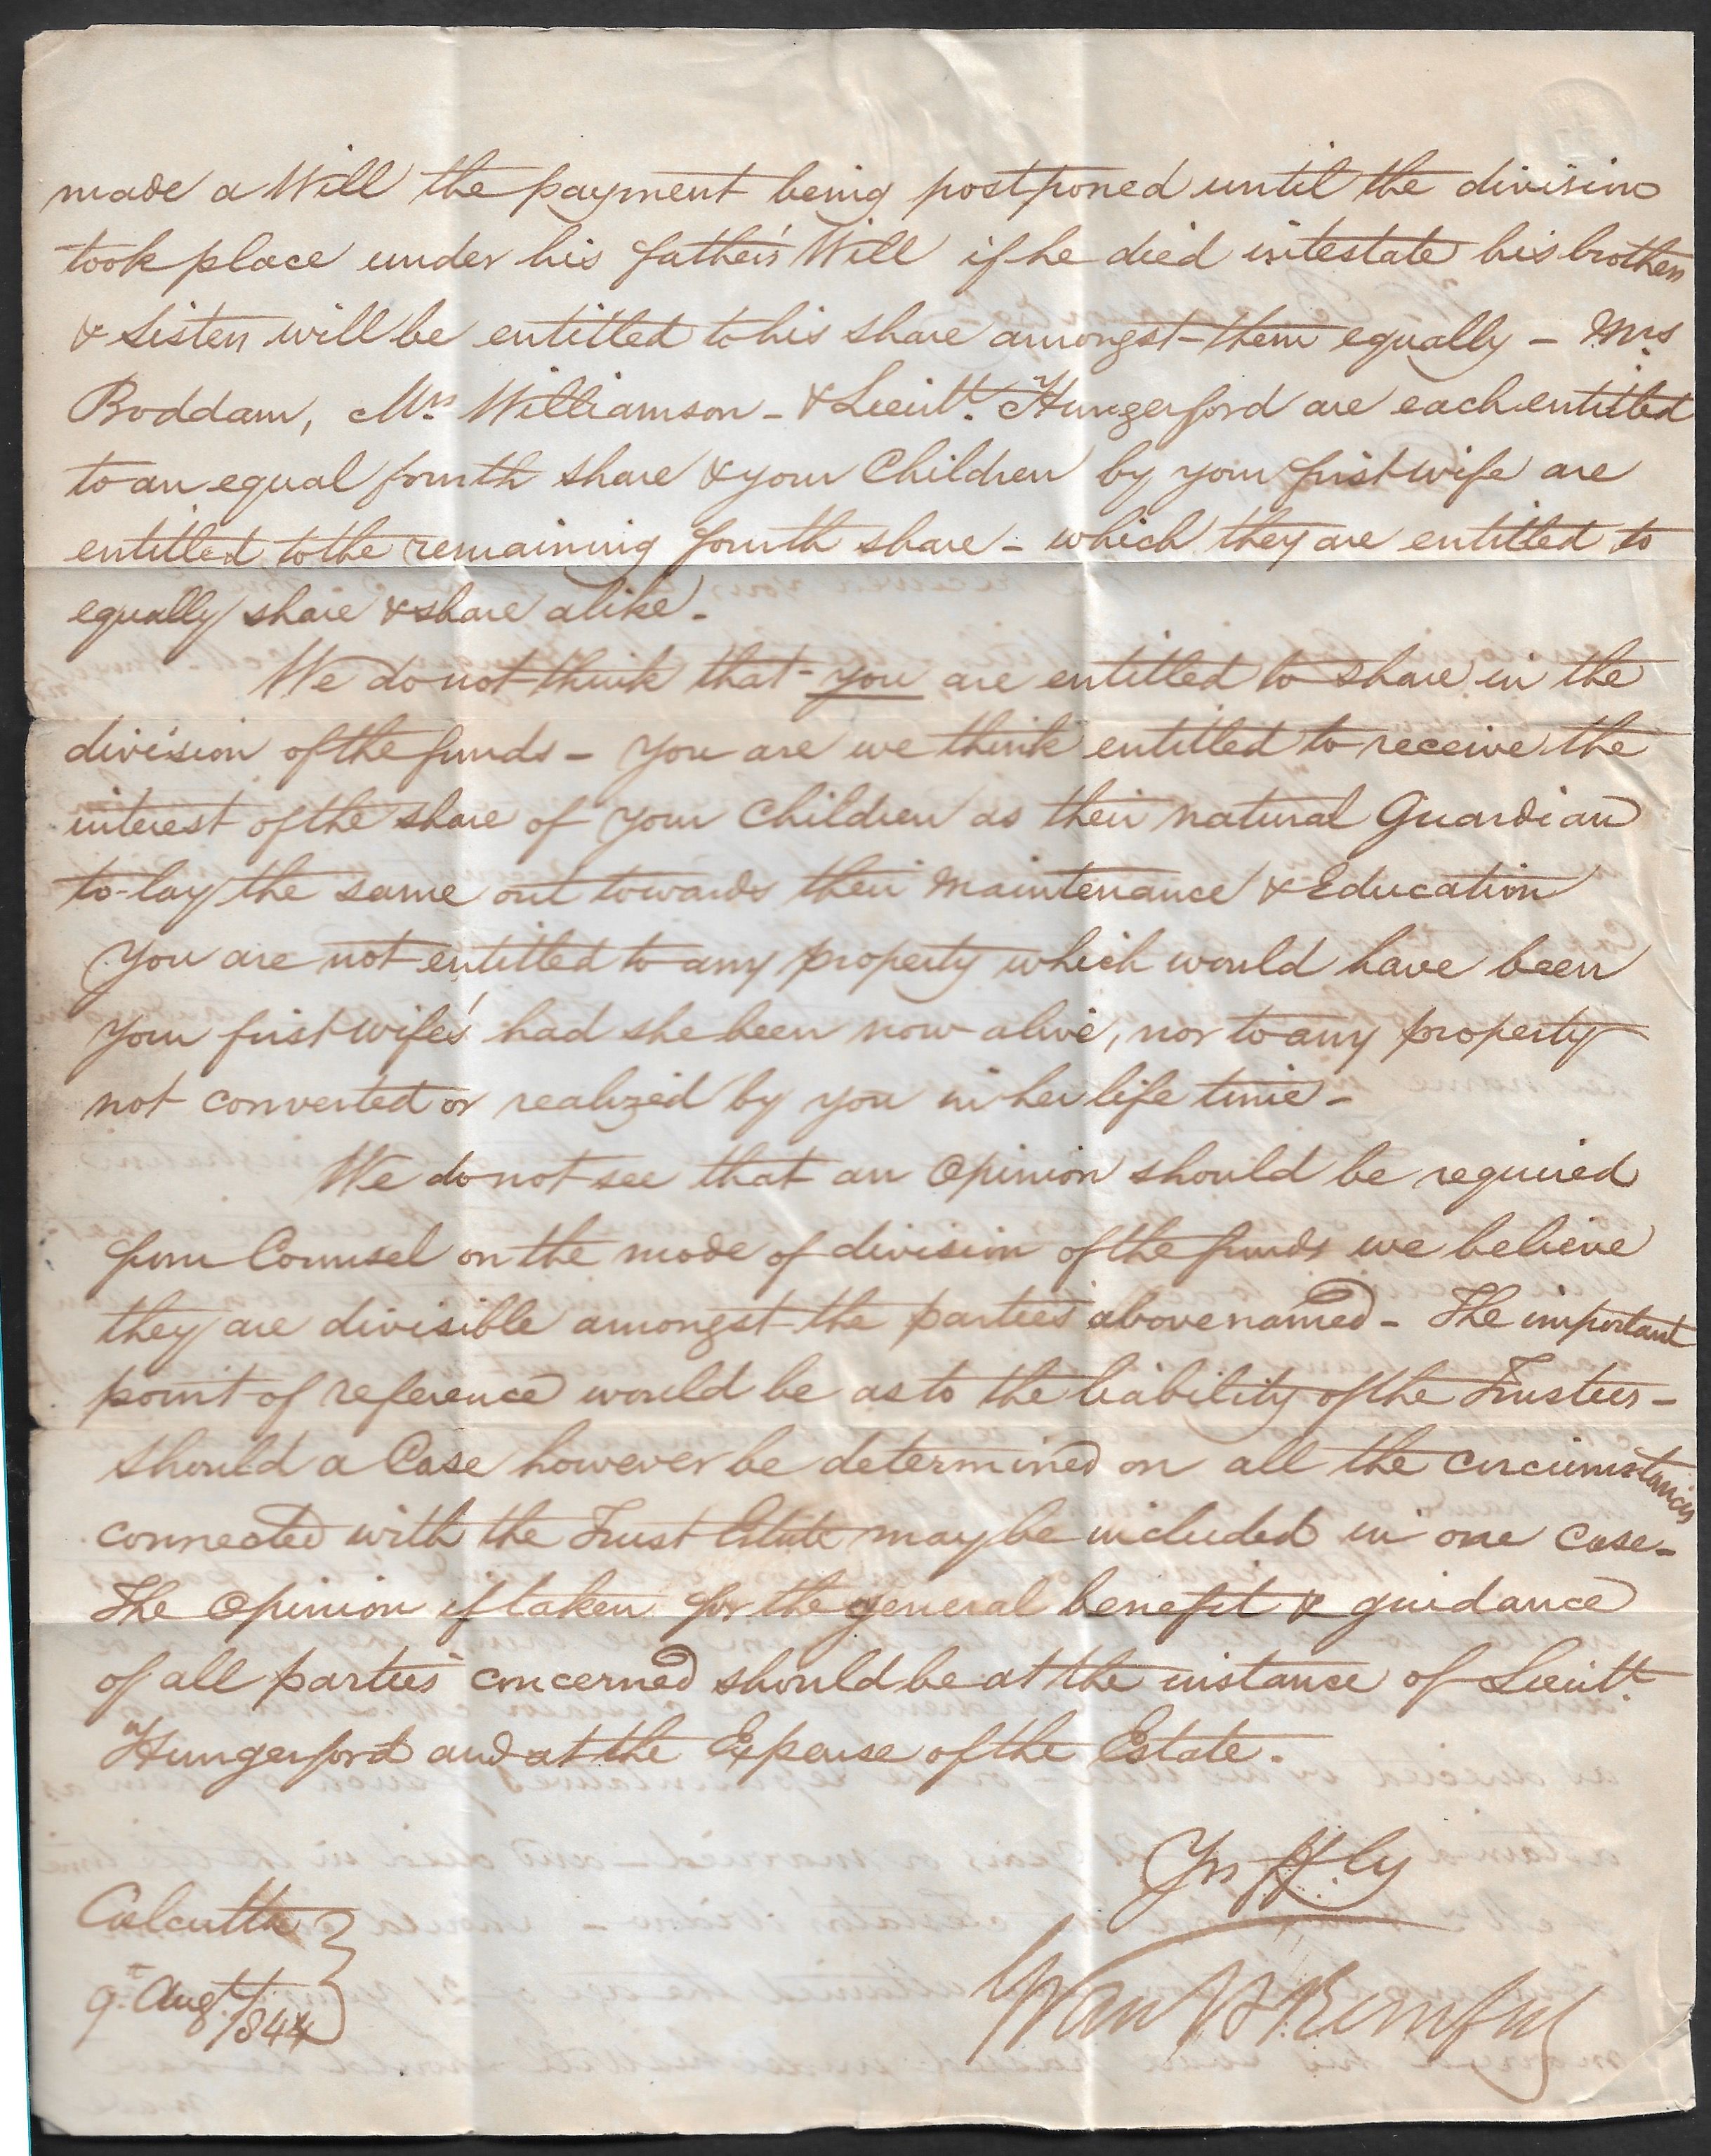 made a Will the payment being postponed until the division
took place under his father's Will if he died intestate his brothers
& Sisters will be entitled to his share amongst them equally - Mrs
Boddam, Mrs Williamson - & Lieutt. Hungerford are each entitled
to an equal fourth share & your Children by your first wife are
entitled to the remaining fourth share - which they are entitled to
equally share & share alike -
We do not think that - you are entitled to share in the
division of the funds - you are we think entitled to receive the
interest of the share of your Children as their natural Guardian
to lay the same out towards their maintenance & Education
You are not entitled to any property which would have been
your first wife's had she been now alive, nor to any property
not converted or realized by you in her life time -
We do not see that an Opinion should be required
from Counsel on the mode of division of the funds we believe
they are divisible amongst the parties above named - The important
point of reference would be as to the liability of the Trustees -
should a Case however be determined on all the circumstances
connected with the Trust Estate may be included in one case -
The Opinion if taken for the general benefit & guidance
of all parties concerned should be at the instance of Lieutt.
Hungerford and at the Expense of the Estate -
Yrs ffly
Calcutta
9th Augt. 1844